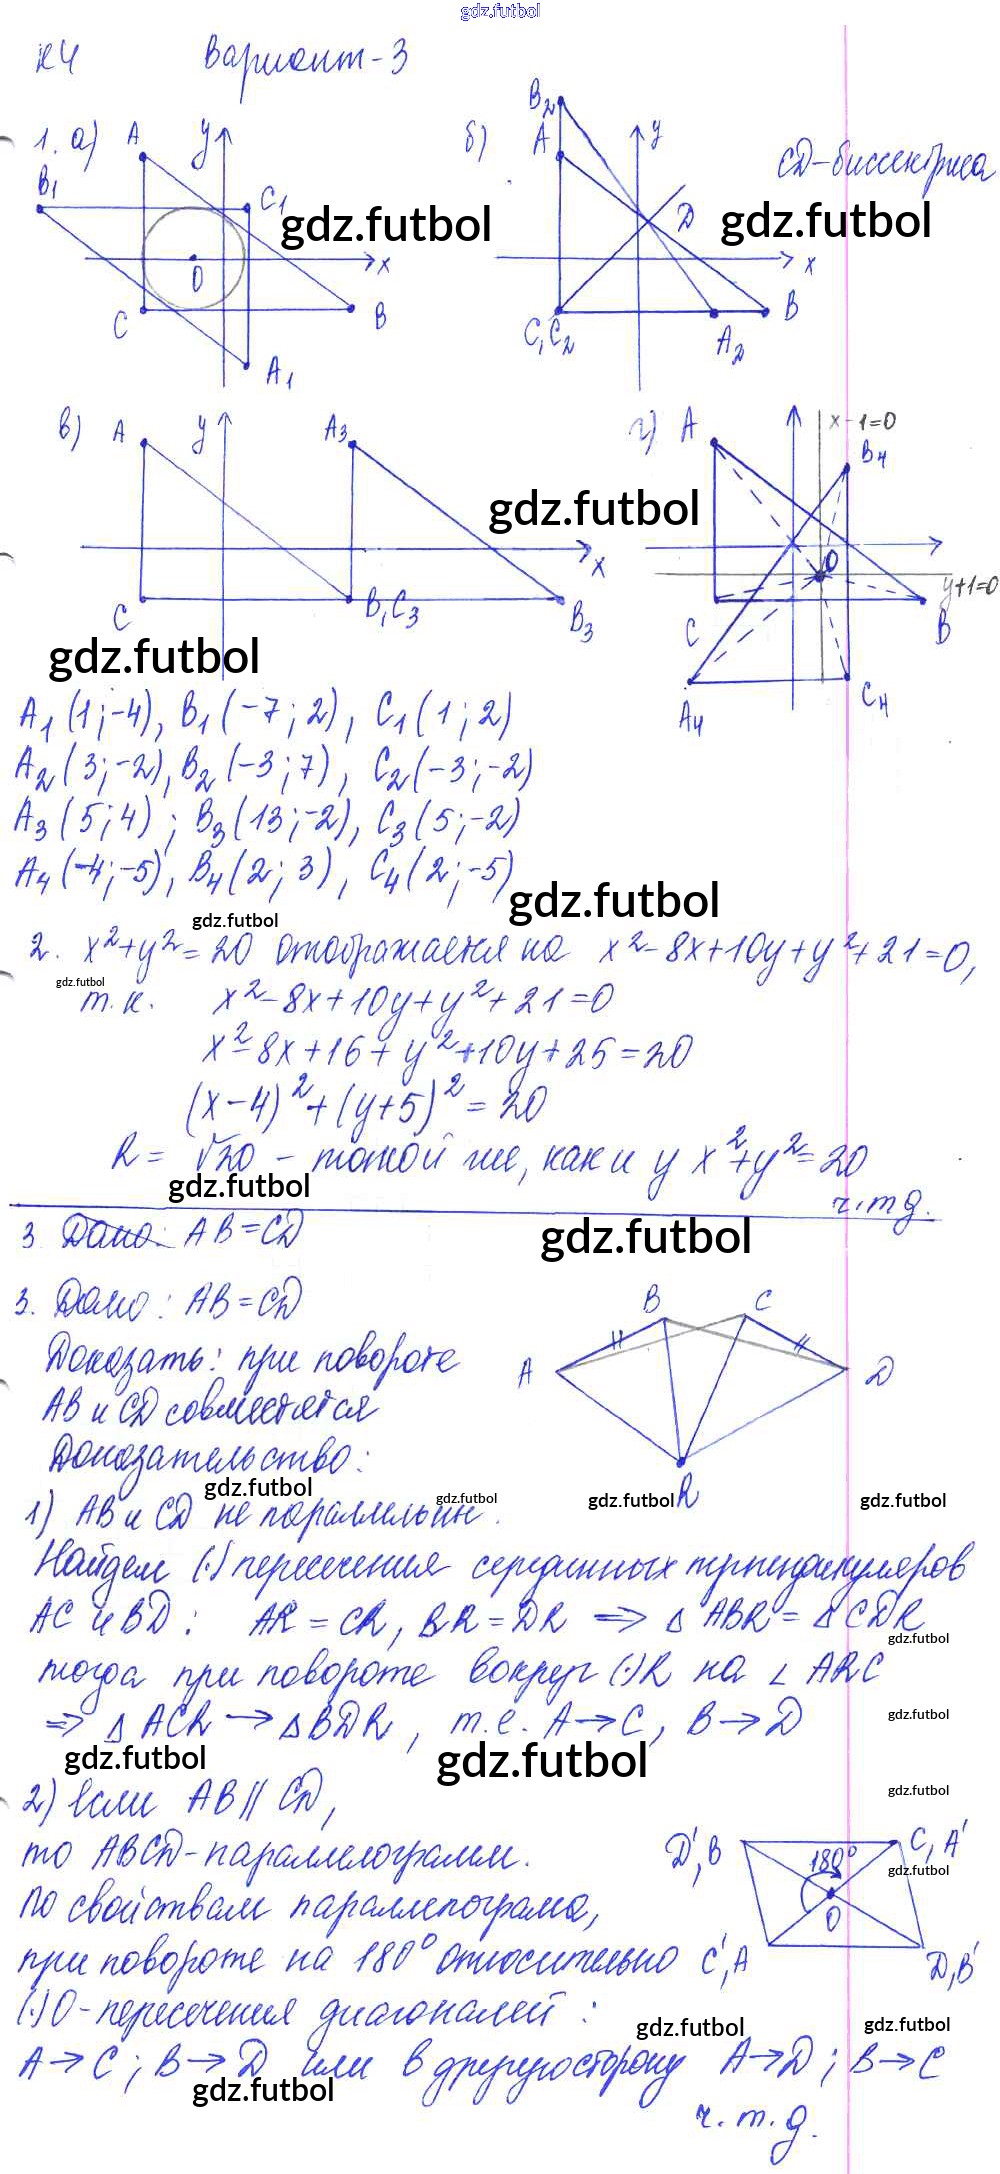 gdz.futbol
К4 Вариант-3
1. а) A y B₁ C₁ O x C B A₁
б) B₂ A y D x C, C₂ A₂ B CD-биссектриса
gdz.futbol gdz.futbol
в) A y A₃ x C B, C₃ B₃
г) A x-1=0 B₄ O y+1=0 C B A₄ C₄
gdz.futbol
gdz.futbol
A₁(1;-4), B₁(-7;2), C₁(1;2)
A₂(3;-2), B₂(-3;7), C₂(-3;-2)
A₃(5;4); B₃(13;-2), C₃(5;-2)
A₄(-4;-5), B₄(2;3), C₄(2;-5)
gdz.futbol
gdz.futbol
2. x²+y²=20 отображается на x²-8x+10y+y²+21=0,
gdz.futbol
т.к. x²-8x+10y+y²+21=0
x²-8x+16+y²+10y+25=20
(x-4)²+(y+5)²=20
R=√20 - такой же, как и у x²+y²=20
gdz.futbol
ч.т.д.
3 Дано: AB=CD
gdz.futbol
3. Дано: AB=CD
Доказать: при повороте
AB и CD совместятся
Доказательство:
A B C D R
gdz.futbol gdz.futbol gdz.futbol gdz.futbol
1) AB и CD не параллельны.
Найдем (·) пересечения серединных перпендикуляров
AC и BD: AR=CR, BR=DR ⇒ △ABR=△CDR
gdz.futbol
тогда при повороте вокруг (·)R на ∠ARC
⇒ △ACR → △BDR, т.е. A→C, B→D
gdz.futbol
gdz.futbol gdz.futbol
gdz.futbol
2) Если AB∥CD,
то ABCD-параллелограмм.
D', B C, A' 180° O C', A D, B'
gdz.futbol
По свойствам параллелограма,
при повороте на 180° относительно
(·)O-пересечения диагоналей:
gdz.futbol gdz.futbol
A→C; B→D или в другую сторону A→D; B→C
gdz.futbol
ч.т.д.